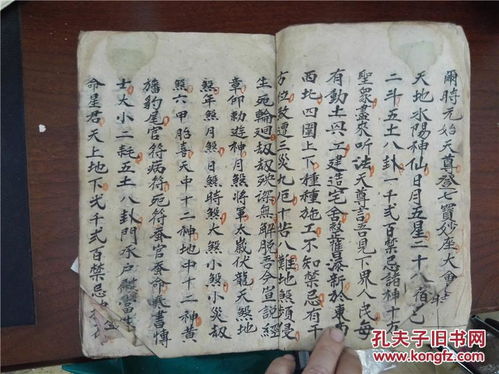 爾時元始天尊登七寶妙座大會
天地水陽神仙日月五星二十八宿
二斗五土八卦一千弍百禁忌諸神十二
聖衆盡來听法天尊言吾見下界人民每
有動土興工建造宅舍整舊添新於東南
西北四圍上下種種施工不知禁忌有干
方位故遭三災九厄十苦八難地煞類侵
生死輪迴劫劫殃深無解脱吾今宣説經
章仰勸遊神月煞將軍太歲伏龍天煞地
煞年煞月煞日煞時煞大煞小煞小災劫
煞六甲胎喜天中十二神地中十二神黄
旛豹尾官符病符死符奏官奏命奏書博
士大小二耗五土八卦門承户尉當生
命星君天上地下弍千弍百禁忌
孔夫子旧书网
www.kongfz.com